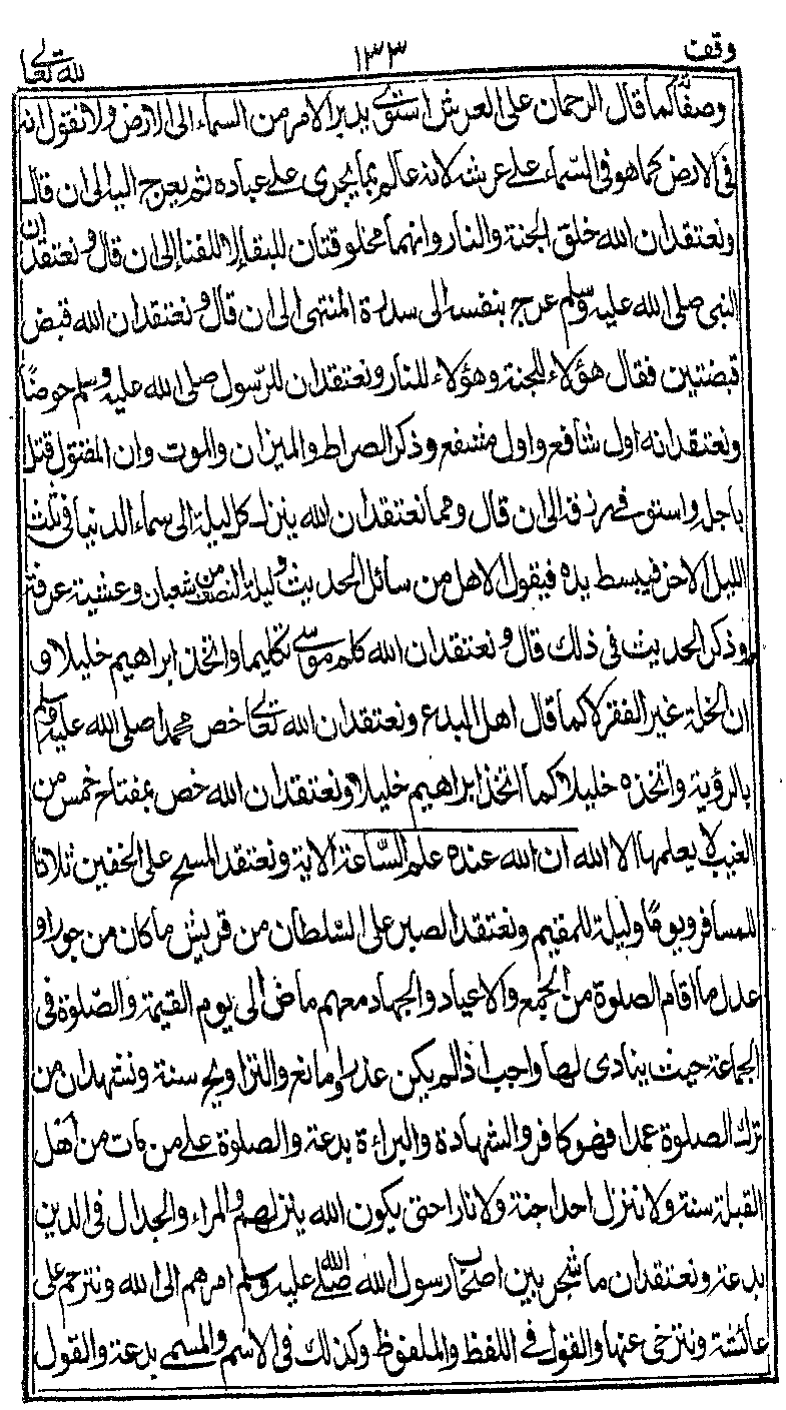 وقف ١٣٣ لله تعالى
وصفاته كما قال الرحمان على العرش استوى يدبر الامر من السماء الى الارض ولا نقول انه
فى الارض كما هو فى السماء على عرشه لانه عالم بما يجرى على عباده ثم يعرج اليه الى ان قال
ونعتقد ان الله خلق الجنة والنار وانهما مخلوقتان للبقا لا للفنا الى ان قال ونعتقد ان
النبى صلى الله عليه وسلم عرج بنفسه الى سدرة المنتهى الى ان قال ونعتقد ان الله قبض
قبضتين فقال هؤلاء للجنة وهؤلاء للنار ونعتقد ان للرسول صلى الله عليه وسلم حوضا
ونعتقد انه اول شافع واول مشفع وذكر الصراط والميزان والموت وان المقتول قتل
باجله واستوفى رزقه الى ان قال ومما نعتقد ان الله ينزل كل ليلة الى سماء الدنيا فى ثلث
الليل الاخر فيبسط يده فيقول الا هل من سائل الحديث وليلة النصف من شعبان وعشية عرفة
وذكر الحديث فى ذلك قال ونعتقد ان الله كلم موسى تكليما واتخذ ابراهيم خليلا و
ان الخلة غير الفقر لا كما قال اهل البدع ونعتقد ان الله تعالى خص محمدا صلى الله عليه وسلم
بالرؤية واتخذه خليلا كما اتخذ ابراهيم خليلا ونعتقد ان الله خص بمفتاح خمس من
الغيب لا يعلمها الا الله ان الله عنده علم الساعة الاية ونعتقد المسح على الخفين ثلاثا
للمسافر ويوما وليلة للمقيم ونعتقد الصبر على السلطان من قريش ما كان من جور او
عدل ما اقام الصلوة من الجمع والاعياد والجهاد معهم ماض الى يوم القيمة والصلوة فى
الجماعة حيث ينادى لها واجب اذا لم يكن عذر او مانع والتراويح سنة ونشهد ان من
ترك الصلوة عمدا فهو كافر والشهادة والبراءة بدعة والصلوة على من مات من اهل
القبلة سنة ولا ننزل احدا جنة ولا نارا حتى يكون الله ينزلهم والمراء والجدال فى الدين
بدعة ونعتقد ان ما شجر بين اصحاب رسول الله صلى الله عليه وسلم امرهم الى الله ونترحم على
عائشة ونترضى عنها والقول فى اللفظ والملفوظ وكذلك فى الاسم والمسمى بدعة والقول